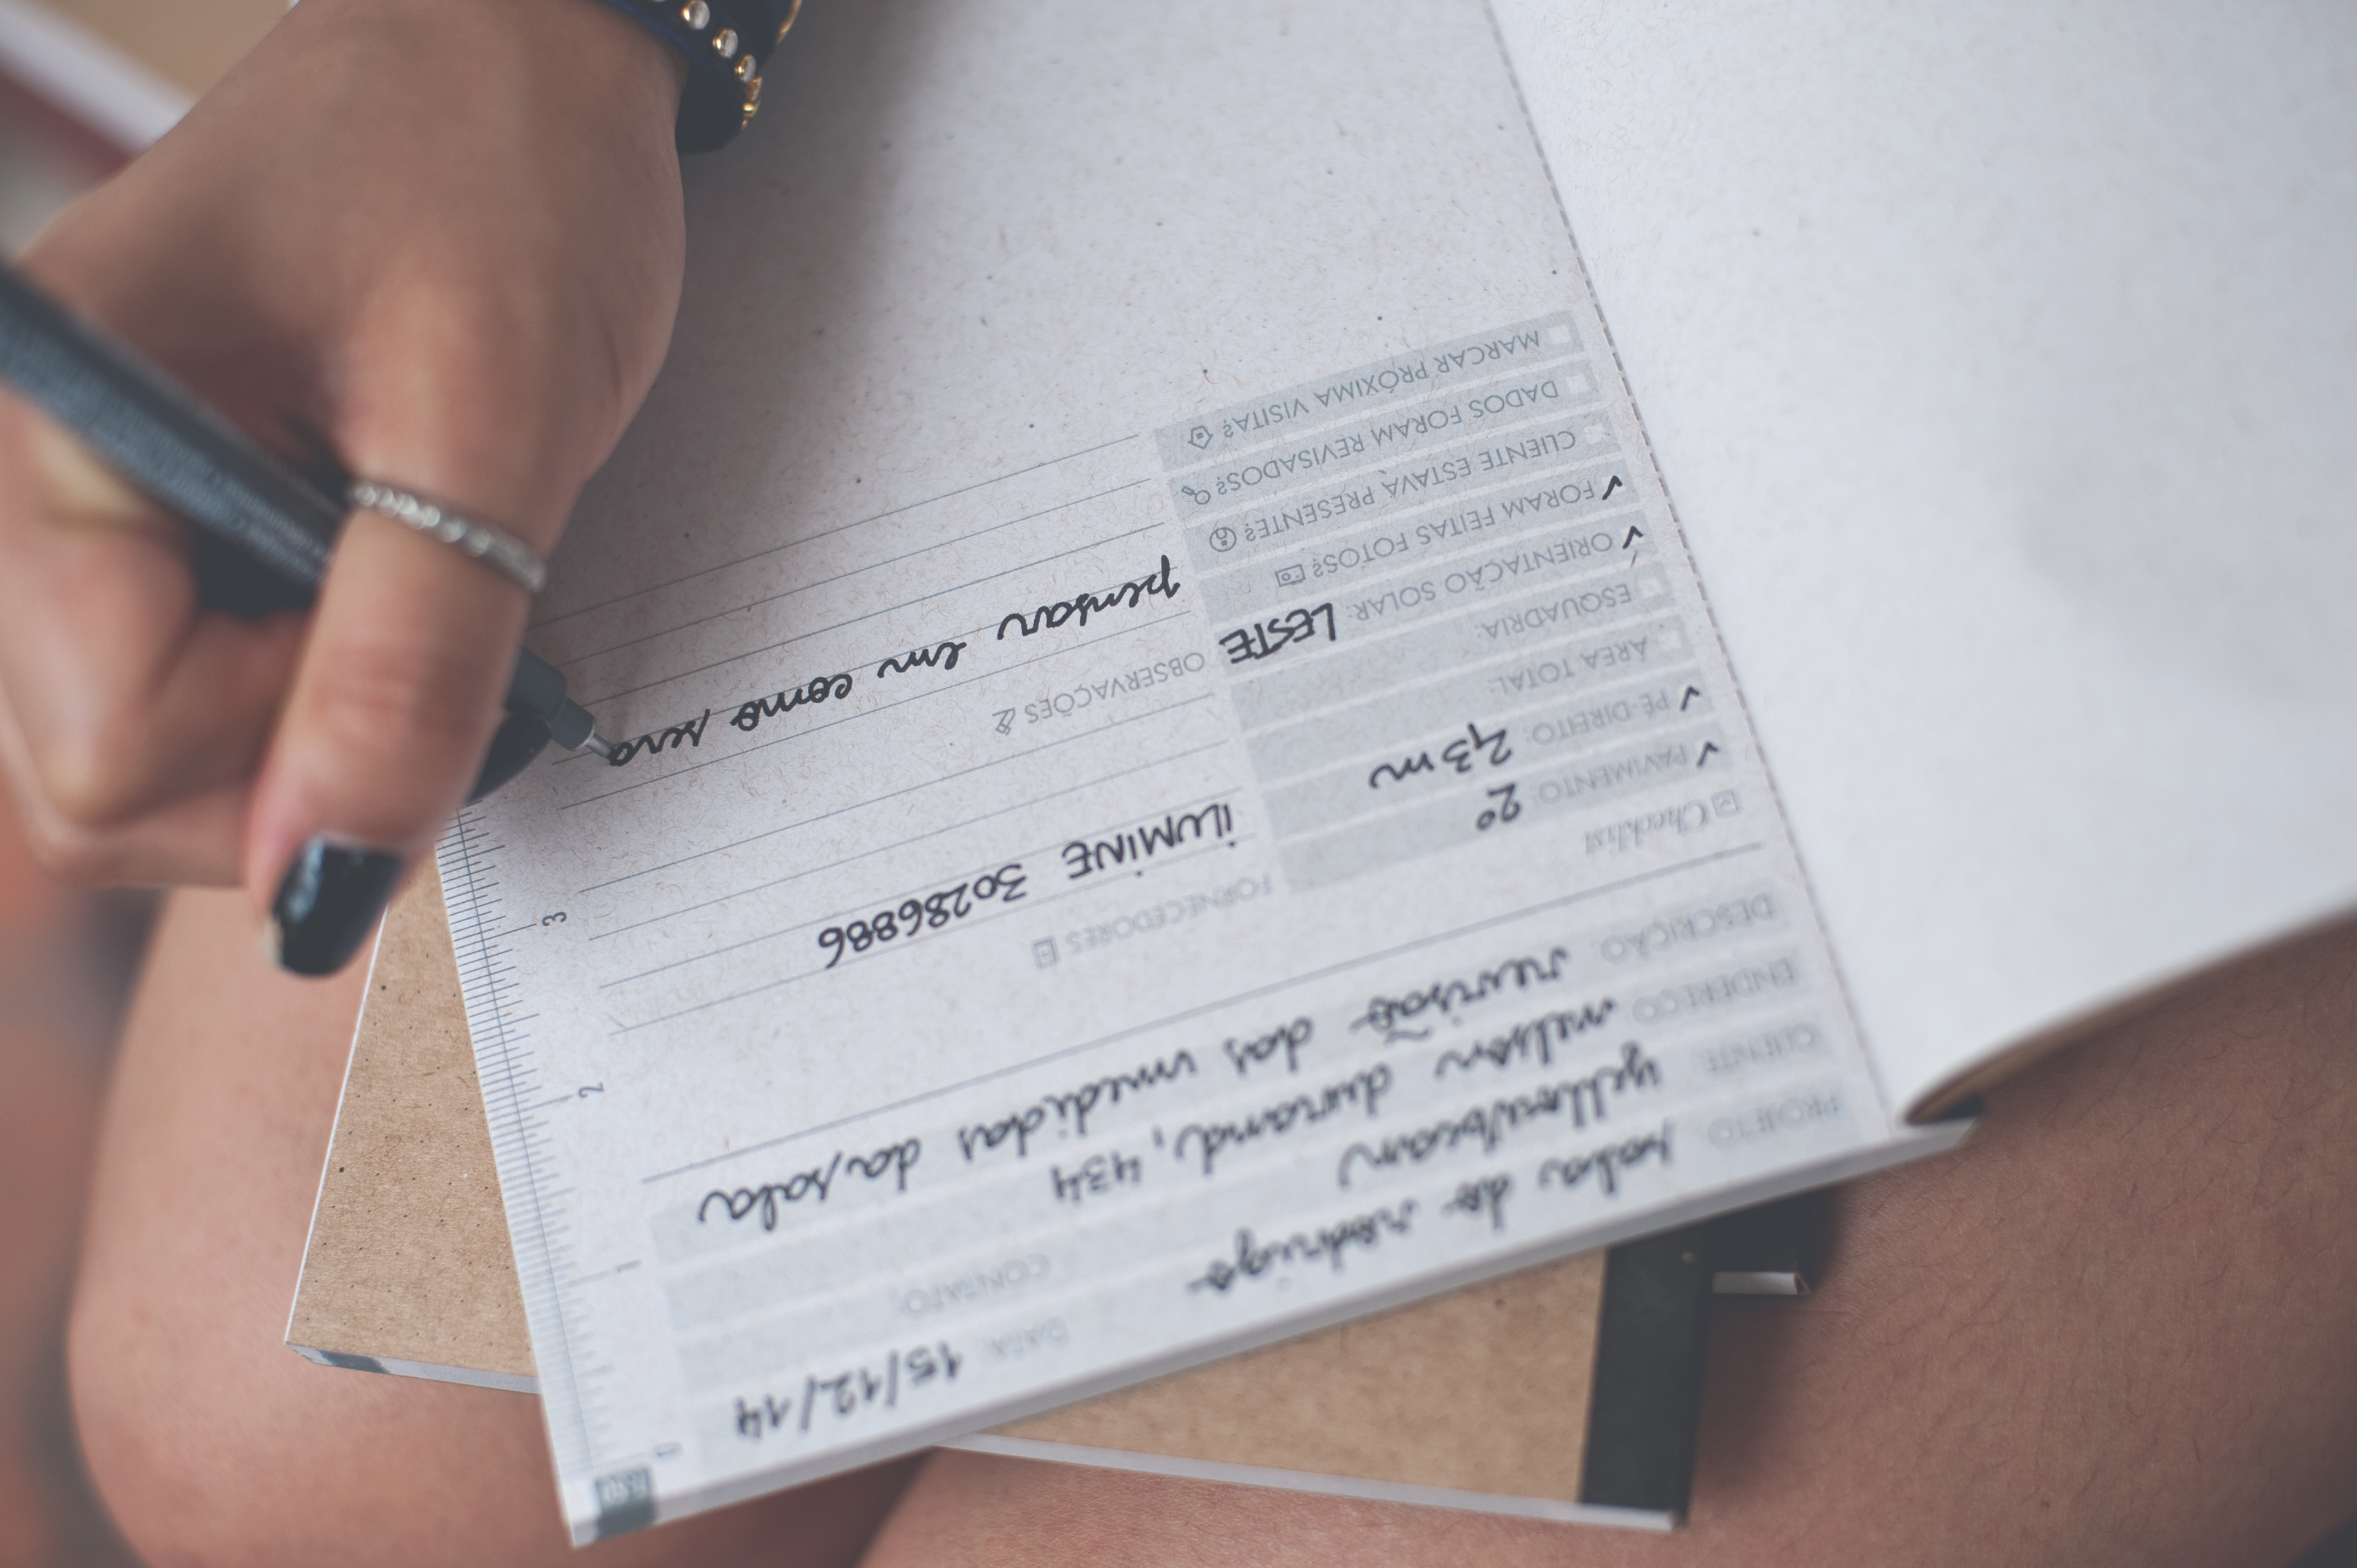 PROJETO: sala do rodrigo
DATA: 15/12/14
CLIENTE: yellowbean
CONTATO:
ENDEREÇO: nelson durand, 434
DESCRIÇÃO: revisão das medidas da sala
Checklist
PAVIMENTO: 2º
PÉ-DIREITO: 2,3m
ÁREA TOTAL:
ESQUADRIA:
ORIENTAÇÃO SOLAR: LESTE
FORAM FEITAS FOTOS?
CLIENTE ESTAVA PRESENTE?
DADOS FORAM REVISADOS?
MARCAR PRÓXIMA VISITA?
FORNECEDORES
iLUMiNE 30286886
OBSERVAÇÕES
pensar em como será
1
1
2
3